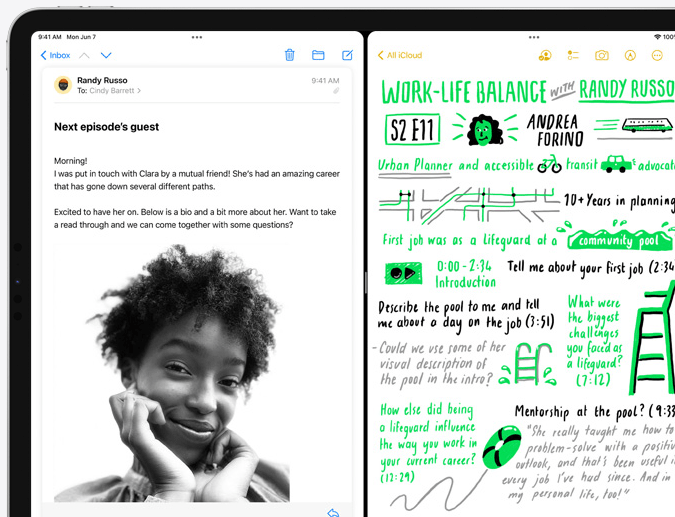 9:41 AM Mon Jun 7
100%
Inbox
Randy Russo
9:41 AM
To: Cindy Barrett
Next episode's guest
Morning!
I was put in touch with Clara by a mutual friend! She's had an amazing career
that has gone down several different paths.
Excited to have her on. Below is a bio and a bit more about her. Want to take
a read through and we can come together with some questions?
All iCloud
WORK-LIFE BALANCE WITH RANDY RUSSO
S2 E11
ANDREA
FORINO
Urban Planner and accessible transit & advocat
10+ Years in planning
First job was as a lifeguard at a community pool
0:00 - 2:34
Introduction
Tell me about your first job (2:34
Describe the pool to me and tell
me about a day on the job (3:51)
- Could we use some of her
visual description of
the pool in the intro?
What were
the biggest
challenges
you faced as
a lifeguard?
(7:12)
How else did being
a lifeguard influence
the way you work in
your current career?
(12:29)
Mentorship at the pool? (9:33
"She really taught me how to
problem-solve with a positiv
outlook, and that's been useful i
every job I've had since. And in
my personal life, too!"